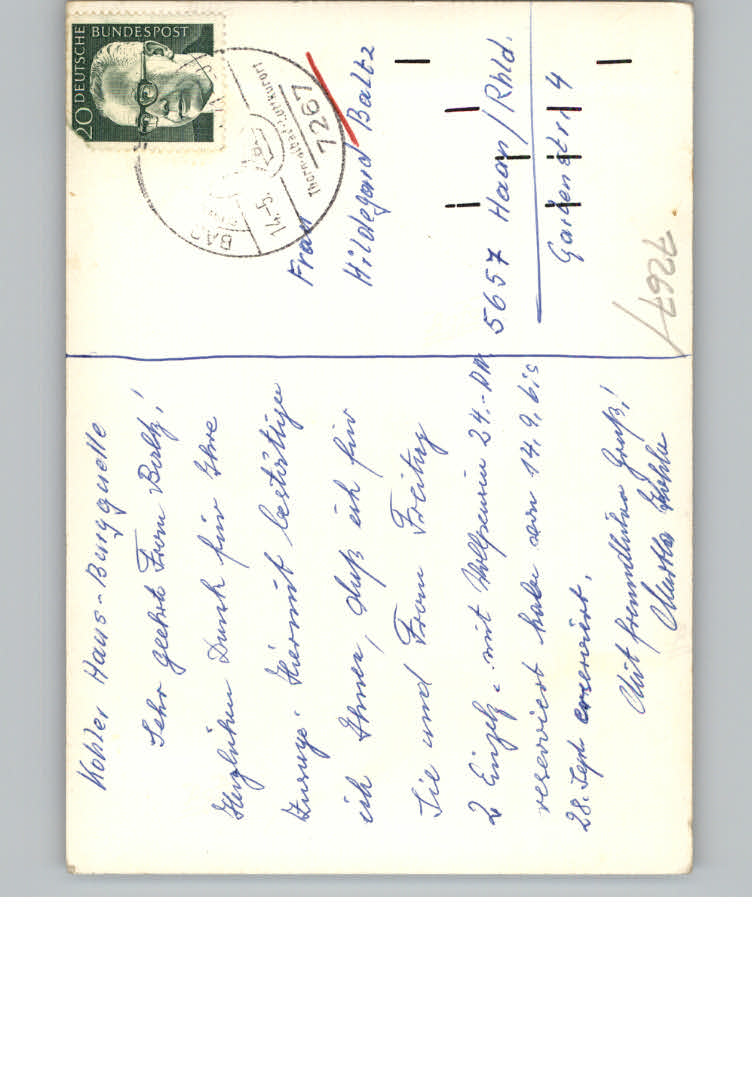 Kohler Haus-Burgquelle
Sehr geehrte Frau Baltz!
Herzlichen Dank für Ihre
Zusage. Hiermit bestätige
ich Ihnen, daß ich für
Sie und Frau Freitag
2 Einzelz. mit Vollpension 24.-DM
reserviert habe vom 14.9. bis
28. Sept.
Mit freundlichem Gruß!
20 DEUTSCHE BUNDESPOST
7267
Thermalbad-Luftkurort
14.-5.
BAD
Frau
Hildegard Baltz
5657 Haan/Rhld.
Gartenstr. 4
7267